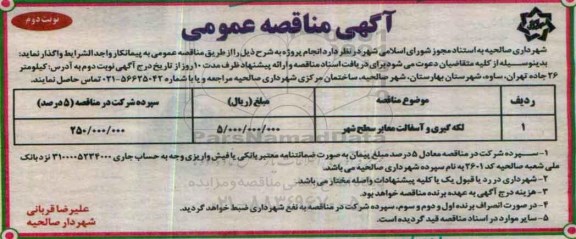 نوبت دوم
آگهی مناقصه عمومی
شهرداری صالحیه به استناد مجوز شورای اسلامی شهر در نظر دارد انجام پروژه به شرح ذیل را از طریق مناقصه عمومی به پیمانکار واجد الشرایط واگذار نماید:
بدینوسیله از کلیه متقاضیان دعوت می شود برای دریافت اسناد مناقصه و ارائه پیشنهاد ظرف مدت ۱۰ روز از تاریخ درج آگهی نوبت دوم به آدرس: کیلومتر
۲۶ جاده تهران، ساوه، شهرستان بهارستان، شهر صالحیه، ساختمان مرکزی شهرداری صالحیه مراجعه و یا با شماره ۵۶۶۲۵۰۴۲-۰۲۱ تماس حاصل نمایند.
ردیف موضوع مناقصه مبلغ (ریال) سپرده شرکت در مناقصه (۵ درصد)
۱ لکه گیری و آسفالت معابر سطح شهر ۵/۰۰۰/۰۰۰/۰۰۰ ۲۵۰/۰۰۰/۰۰۰
۱- سپرده شرکت در مناقصه معادل ۵ درصد مبلغ پیمان به صورت ضمانتنامه معتبر بانکی یا فیش واریزی وجه به حساب جاری ۳۱۰۰۰۰۵۲۳۴۰۰۰ نزد بانک
ملی شعبه صالحیه کد ۱-۲۶۰ به نام سپرده شهرداری صالحیه می باشد.
۲- شهرداری در رد یا قبول یک یا کلیه پیشنهادات واصله مختار می باشد.
۳- هزینه درج آگهی به عهده برنده مناقصه خواهد بود.
۴- در صورت انصراف برنده اول و دوم و سوم، سپرده شرکت در مناقصه به نفع شهرداری ضبط خواهد گردید.
۵- سایر موارد در اسناد مناقصه قید گردیده است.
علیرضا قربانی
شهردار صالحیه